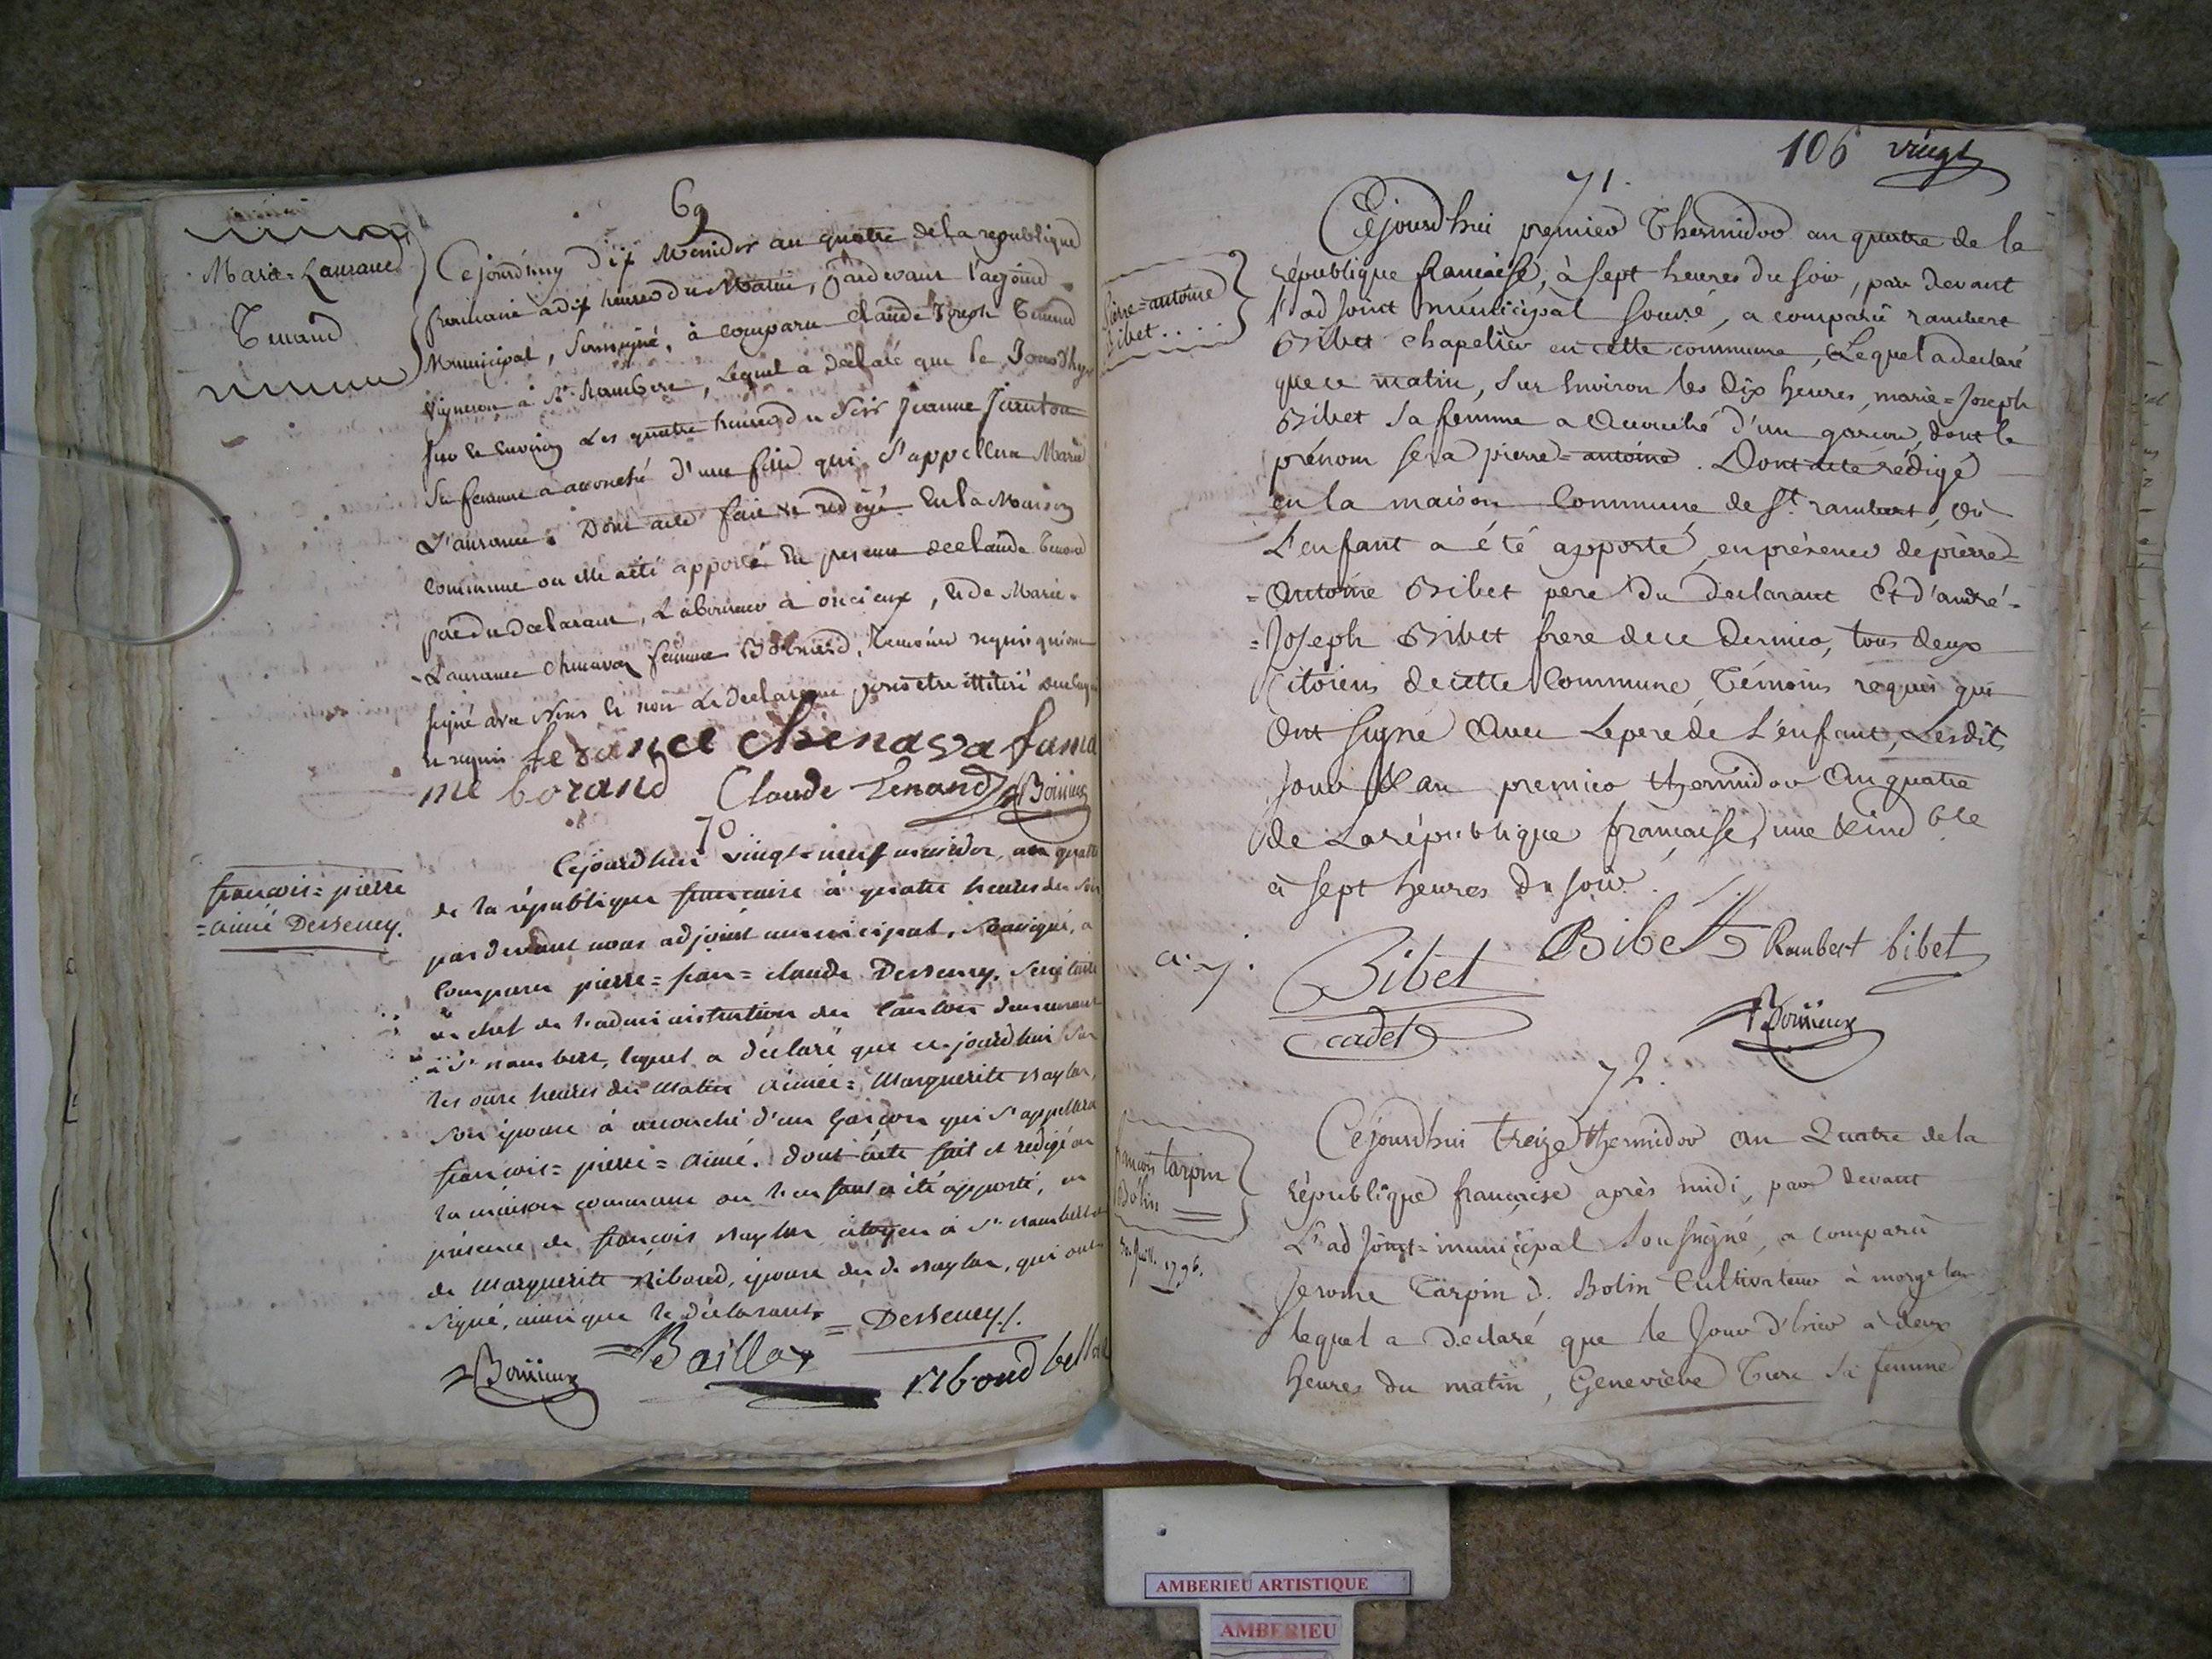 69
Marie=Lauranc
Tenand
Cejourdhuy Dix Messidor an quatre de la republique
francaise a dix heures du Matin, pardevant l'adjoint
Municipal, soussigné, à comparu Claude Joseph Tenand
Vigneron à St. Rambert, Lequel a déclaré que le Jour d'hyer
sur le environ Les quatre heures du soir Jeanne
sa femme a accouché d'une fille qui s'appellera Marie
L'aurance. Dont acte fait et redigé En la Maison
commune ou elle a été apporté En presence de claude Tenand
père du declarant, Laboureur à oncieux, et de Marie=
Laurance chenavaz femme, temoins requis qui ont
signé avec Nous et non Le declarant pour etre illitéré de ce
requis ferance chenava fama
me borand Claude Tenand Boinieux
70
françois=pierre
=aimé Desseney.
Cejourdhui vingt=neuf messidor, an quatre
de la république francaise à quatre heures du soir
pardevant nous adjoint municipal, soussigné, a
comparu pierre=jean=claude Desseney, secretaire
en chef de l'administration du canton demeurant
à St. rambert, lequel a déclaré que ce jourdhui sur
les onze heures du Matin aimée=Marguerite Baylon,
son épouse à accouché d'un Garçon qui s'appellera
françois=pierre=aimé. dont acte fait et redigé en
la maison commune ou l'enfant a été apporté, en
présence de françois Baylon citoyen à St. rambert et
de Marguerite Riboud, épouse du d. Baylon, qui ont
signé, ainsi que le déclarant. = Desseney
Boinieux Baillon riboud
106 vingt
71.
Pierre=antoine
Bibet....
Cejourdhui premier Thermidor an quatre de la
république francaise, à sept heures du soir, par devant
l'adjoint municipal sousné, a comparû rambert
Bibet chapelier en cette commune, Lequel a declaré
que ce matin, sur environ les dix heures, marie=Joseph
Bibet sa femme a accouché d'un garcon, dont le
prénom sera pierre=antoine. Dont acte rédigé
en la maison commune de St. rambert, où
L'enfant a été apporté en présence de pierre=
=antoine Bibet pere du declarant Et d'andré=
=Joseph Bibet frere de ce dernier, tous deux
citoiens de cette Commune Témoins requis qui
ont signé avec Le pere de L'enfant, Lesdits
jour & an premier thermidor an quatre
de La république francaise, une & ind ble
à sept heures du soir.
Bibet Bibet Rambert bibet
cadet Boinieux
72.
francois tarpin
Bolin
Cejourdhui treize thermidor an Quatre de la
république française après midi, par devant
L'adjoint=municipal Soussigné, a comparû
Jerome Tarpin d. Bolin Cultivateur à morgelas
lequel a Declaré que le Jour d'hier à deux
heures du matin, Genevieve sa femme
1796.
AMBERIEU ARTISTIQUE
AMBERIEU